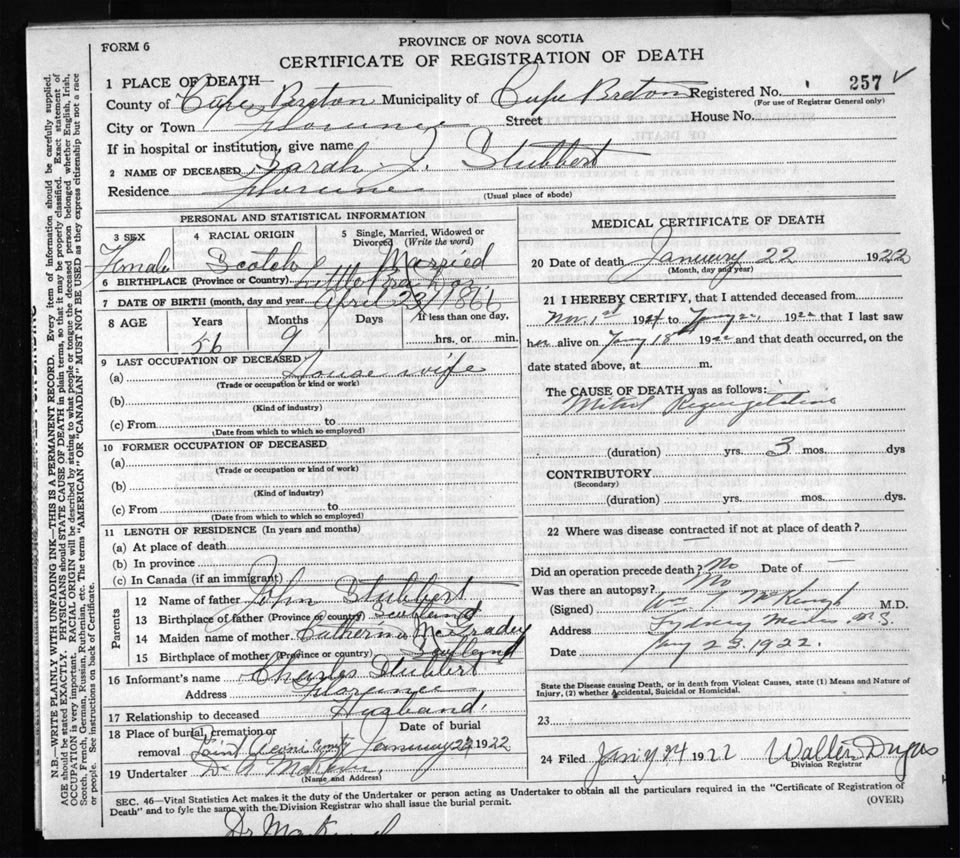 FORM 6
PROVINCE OF NOVA SCOTIA
CERTIFICATE OF REGISTRATION OF DEATH
1 PLACE OF DEATH—
County of Cape Breton Municipality of Cape Breton Registered No. 257
(For use of Registrar General only)
City or Town Florence Street House No.
If in hospital or institution, give name
2 NAME OF DECEASED Sarah J. Stubbert
Residence Florence
(Usual place of abode)
PERSONAL AND STATISTICAL INFORMATION
3 SEX 4 RACIAL ORIGIN 5 Single, Married, Widowed or Divorced (Write the word)
Female Scotch Married
6 BIRTHPLACE (Province or Country) Little Bras d'or
7 DATE OF BIRTH (month, day and year) April 23, 1866
8 AGE Years Months Days If less than one day,
56 9 hrs. or min.
9 LAST OCCUPATION OF DECEASED
(a) House wife
(Trade or occupation or kind or work)
(b)
(Kind of industry)
(c) From to
(Date from which to which so employed)
10 FORMER OCCUPATION OF DECEASED
(a)
(Trade or occupation or kind of work)
(b)
(Kind of industry)
(c) From to
(Date from which to which so employed)
11 LENGTH OF RESIDENCE (In years and months)
(a) At place of death
(b) In province
(c) In Canada (if an immigrant)
Parents
12 Name of father John Stubbert
13 Birthplace of father (Province or country) Scotland
14 Maiden name of mother Catherine McGradey
15 Birthplace of mother (Province or country) Scotland
16 Informant's name Charles Stubbert
Address Florence
17 Relationship to deceased Husband.
18 Place of burial, cremation or removal Date of burial
January 24 1922
19 Undertaker
(Name and Address)
MEDICAL CERTIFICATE OF DEATH
20 Date of death January 22 1922
(Month, day and year)
21 I HEREBY CERTIFY, that I attended deceased from
Nov. 1st 1921 to Jany 22, 1922 that I last saw
her alive on Jany 18th 1922 and that death occurred, on the
date stated above, at m.
The CAUSE OF DEATH was as follows:
Mitral Regurgitation
(duration) yrs. 3 mos. dys
CONTRIBUTORY
(Secondary)
(duration) yrs. mos. dys.
22 Where was disease contracted if not at place of death?
Did an operation precede death? No Date of —
Was there an autopsy? No
(Signed) Wm T McKeough M.D.
Address Sydney Mines, N.S.
Date Jany 23, 1922.
State the Disease causing Death, or in death from Violent Causes, state (1) Means and Nature of
Injury, (2) whether Accidental, Suicidal or Homicidal.
23
24 Filed Jany 24 1922 Walter Dugas
Division Registrar
SEC. 46—Vital Statistics Act makes it the duty of the Undertaker or person acting as Undertaker to obtain all the particulars required in the "Certificate of Registration of
Death" and to fyle the same with the Division Registrar who shall issue the burial permit.
(OVER)
N.B.—WRITE PLAINLY WITH UNFADING INK—THIS IS A PERMANENT RECORD. Every item of information should be carefully supplied.
AGE should be stated EXACTLY. PHYSICIANS should STATE CAUSE OF DEATH in plain terms, so that it may be properly classified. Exact statement of
OCCUPATION is very important. RACIAL ORIGIN will be described by stating to what people or tongue the deceased person belonged whether English, Irish,
Scotch, French, German, Russian, Ruthenian, etc. The terms "AMERICAN" OR "CANADIAN" MUST NOT BE USED as they express citizenship but not a race
or people. See instructions on back of Certificate.